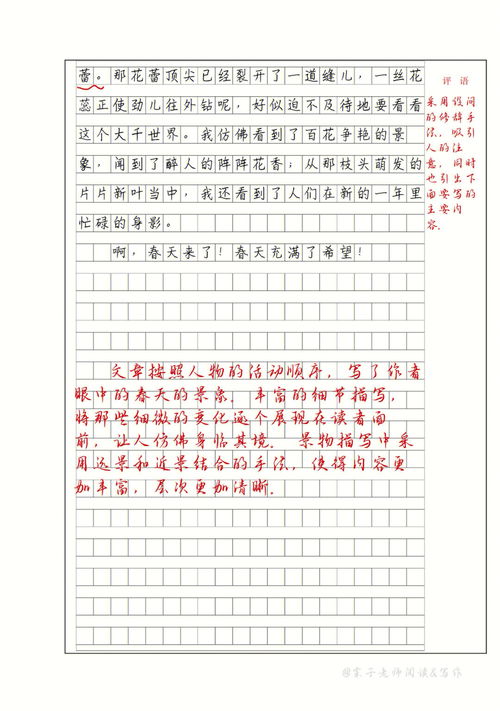 蕾。那花蕾顶尖已经裂开了一道缝儿，一丝花
蕊正使劲儿往外钻呢，好似迫不及待地要看看
这个大千世界。我仿佛看到了百花争艳的景
象，闻到了醉人的阵阵花香；从那枝头萌发的
片片新叶当中，我还看到了人们在新的一年里
忙碌的身影。
啊，春天来了！春天充满了希望！
评语
采用设问
的修辞手
法，吸引
人的注
意，同时
也引出下
面要写的
主要内
容.
文章按照人物的活动顺序，写了作者
眼中的春天的景象.丰富的细节描写，
将那些细微的变化逐个展现在读者面
前，让人仿佛身临其境.景物描写中采
用远景和近景结合的手法，使得内容更
加丰富，层次更加清晰.
@宋子老师阅读&写作